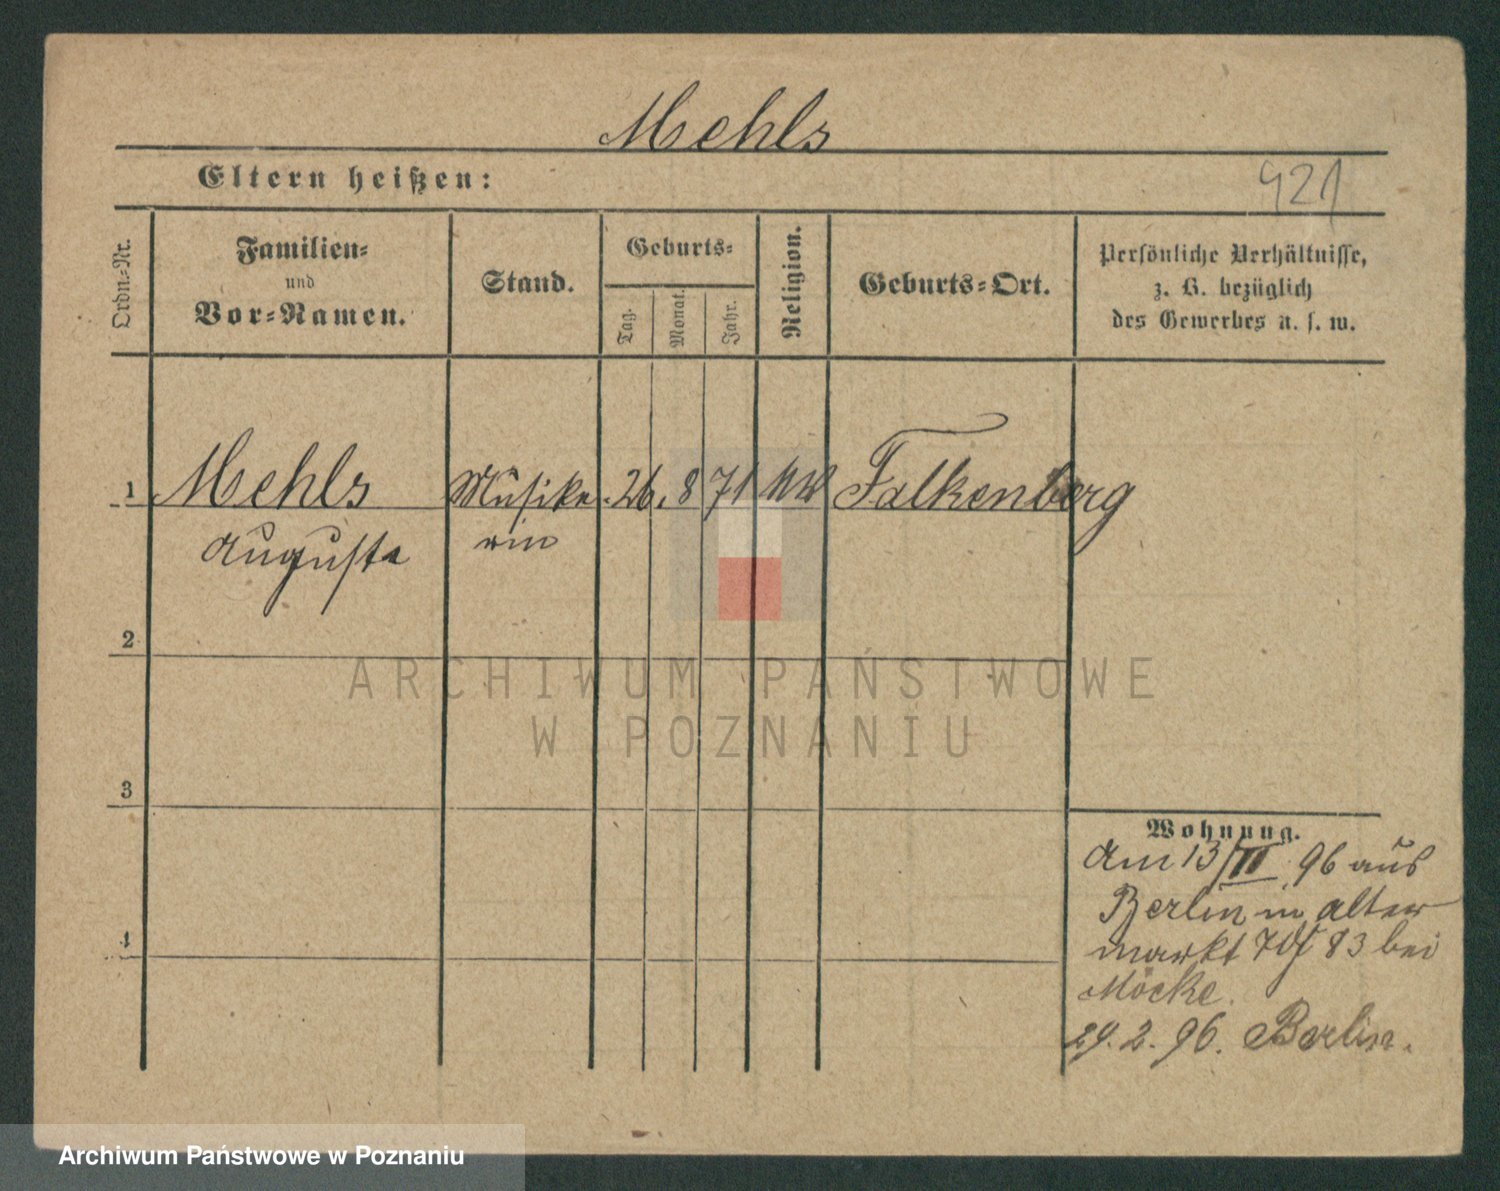 Mehls
Eltern heißen:
421
Ordn.-Nr.
Familien-
und
Vor-Namen.
Stand.
Geburts-
Tag.
Monat.
Jahr.
Religion.
Geburts-Ort.
Persönliche Verhältnisse,
z. B. bezüglich
des Gewerbes u. s. w.
1 Mehls Musike 26. 8 71 Falkenberg
Auguste rin
2
ARCHIWUM PAŃSTWOWE
W POZNANIU
3
Wohnung.
Am 13/II 96 aus
Berlin in Alter
markt 83 bei
Möcke.
29. 2. 96. Berlin.
4
Archiwum Państwowe w Poznaniu